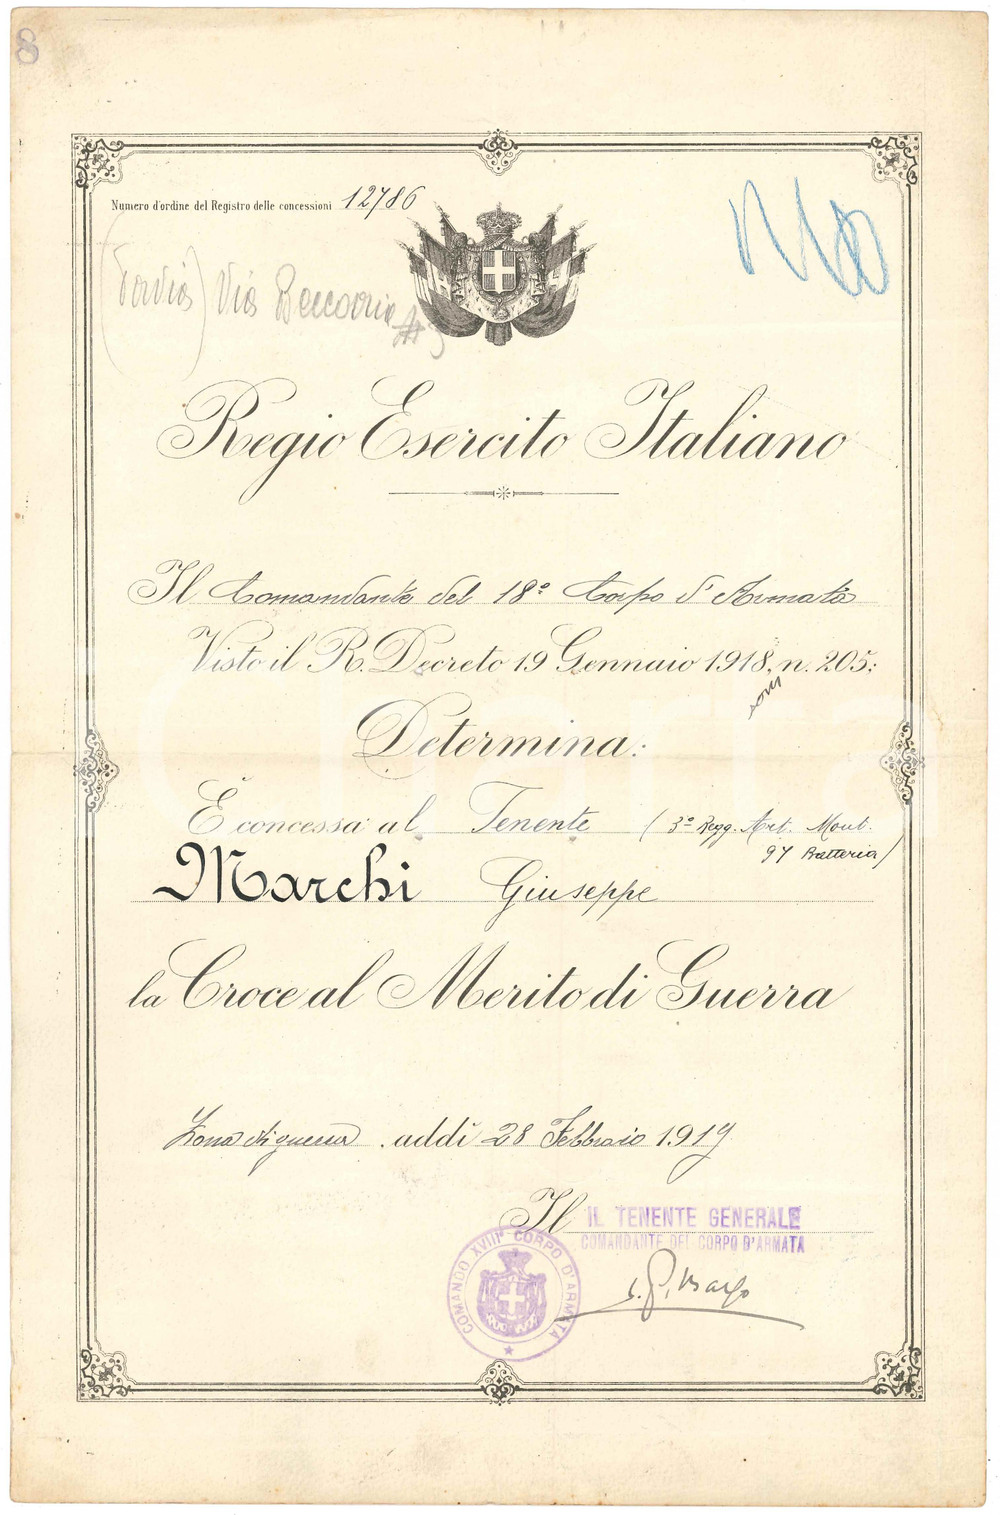 8
Numero d'ordine del Registro delle concessioni 12786
Via Beccaria
Regio Esercito Italiano
Il Comandante del 18º Corpo d'Armata
Visto il R. Decreto 19 Gennaio 1918, n. 205;
Determina:
È concessa al Tenente ( 3º Regg. Art. Mont.
97 Batteria)
Marchi Giuseppe
la Croce al Merito di Guerra
Zona di guerra addì 28 Febbraio 1919
Il IL TENENTE GENERALE
COMANDANTE DEL CORPO D'ARMATA
COMANDO XVIII° CORPO D'ARMATA